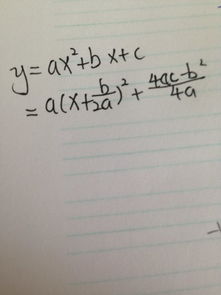 y=ax²+bx+c
=a(x+b/2a)²+4ac-b²/4a